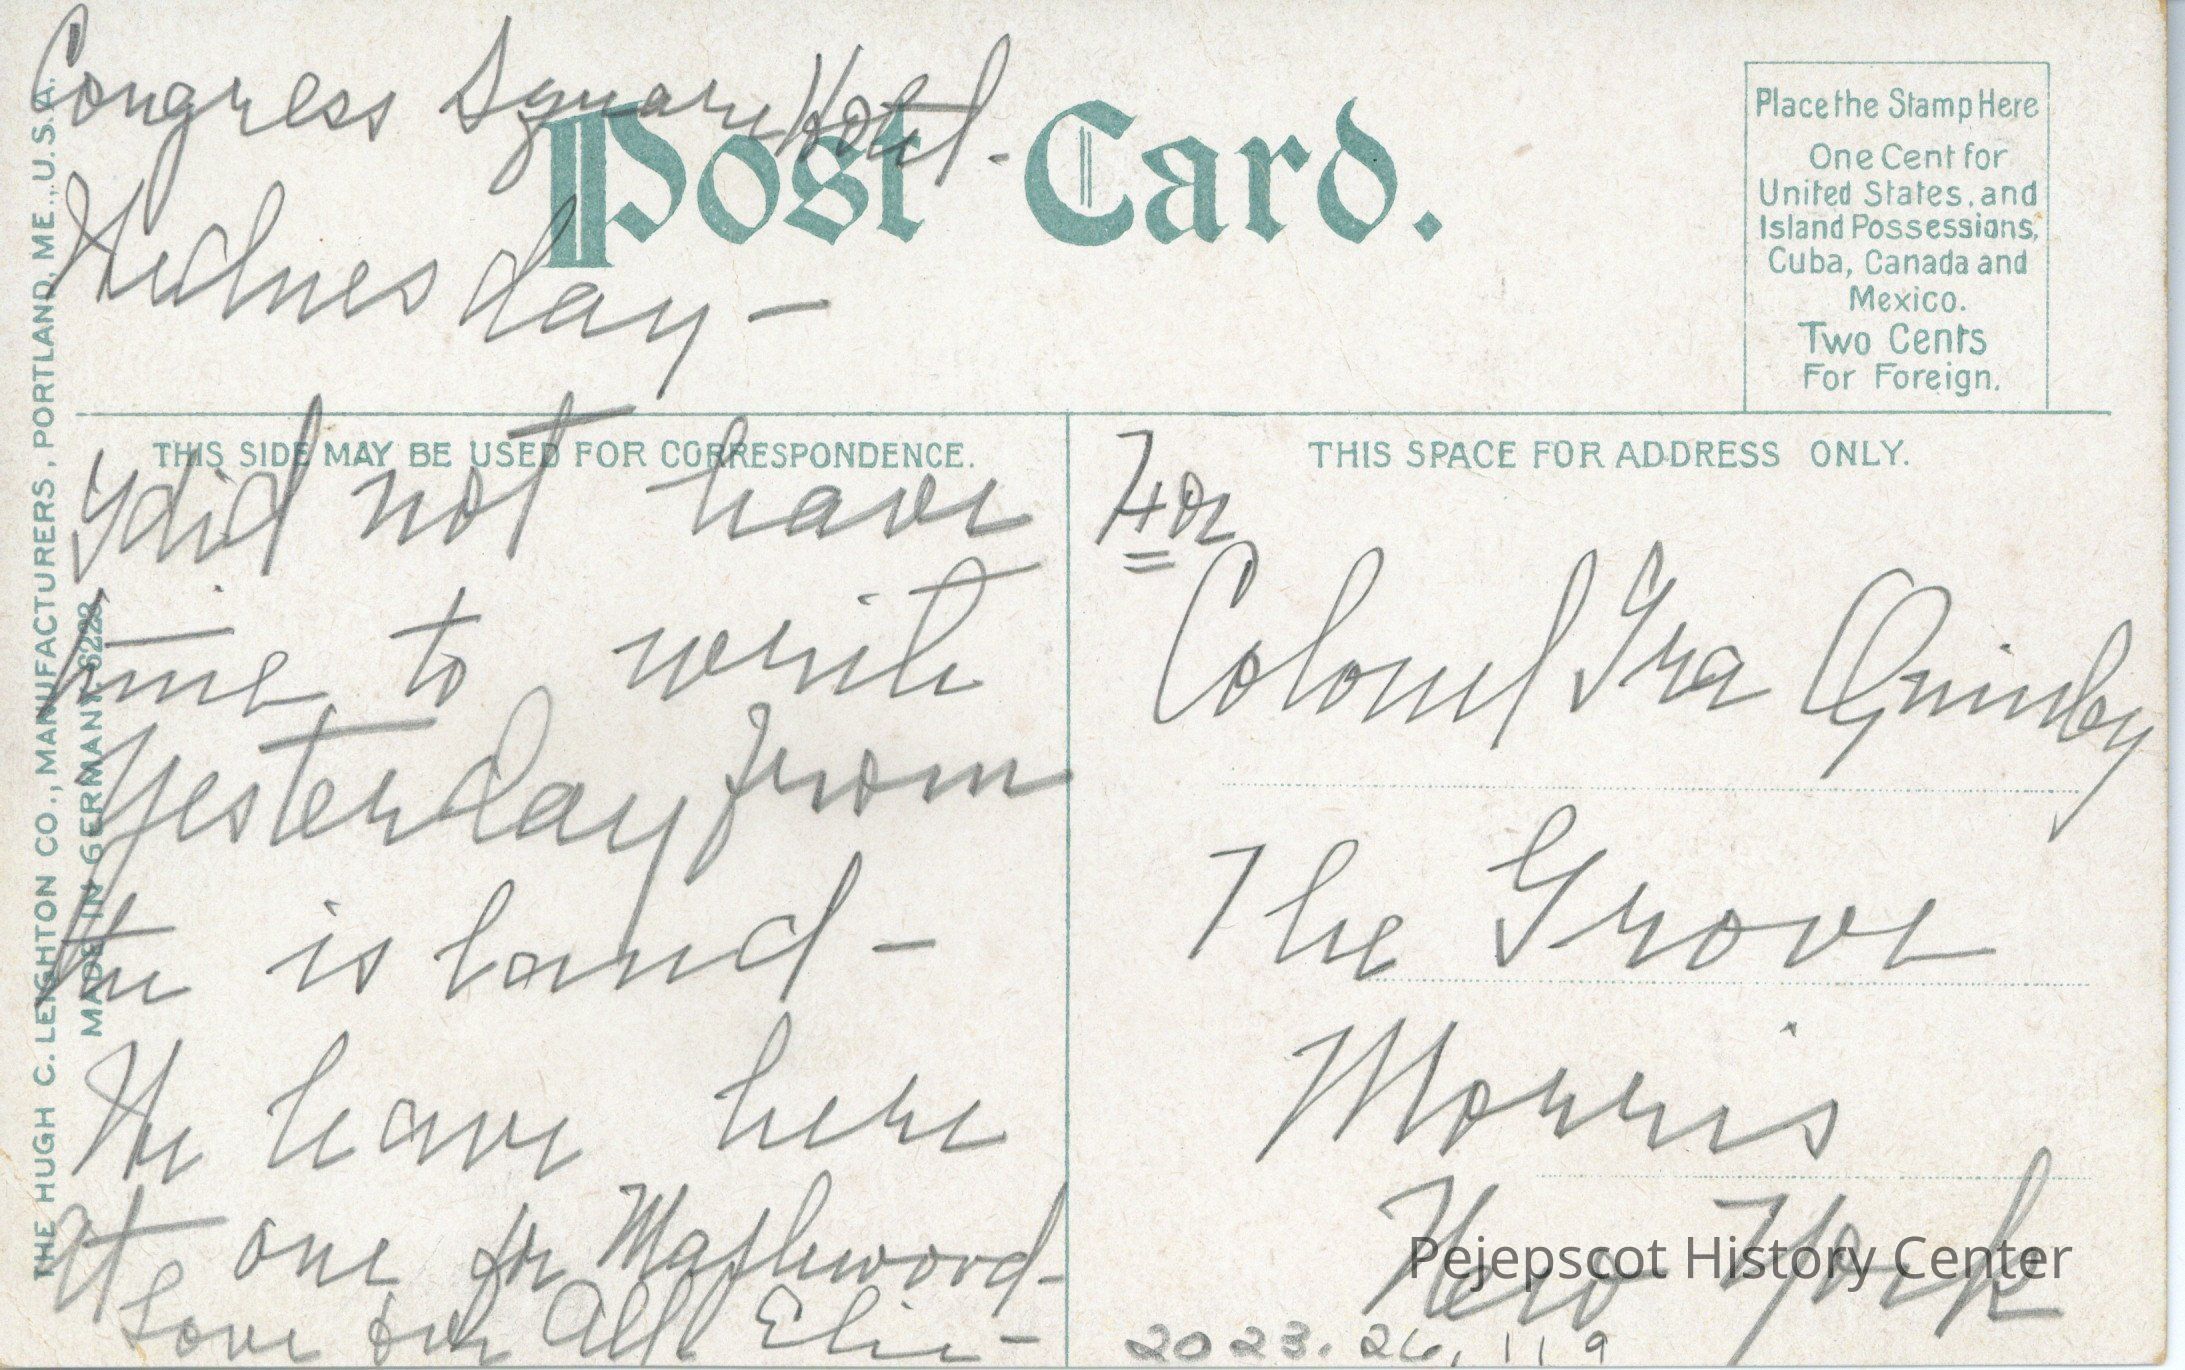 Congress Square Hotel.
Wednesday —
Post Card.
Place the Stamp Here
One Cent for
United States, and
Island Possessions,
Cuba, Canada and
Mexico.
Two Cents
For Foreign.
THE HUGH C. LEIGHTON CO., MANUFACTURERS, PORTLAND, ME., U.S.A.
MADE IN GERMANY. 6228
THIS SIDE MAY BE USED FOR CORRESPONDENCE.
I did not have
time to write
yesterday from
the island —
We leave here
at one for Maplewood —
Love for all
THIS SPACE FOR ADDRESS ONLY.
For
Colonel Ira Quinby
The Grove
Morris
New York
Pejepscot History Center
2023.26.119